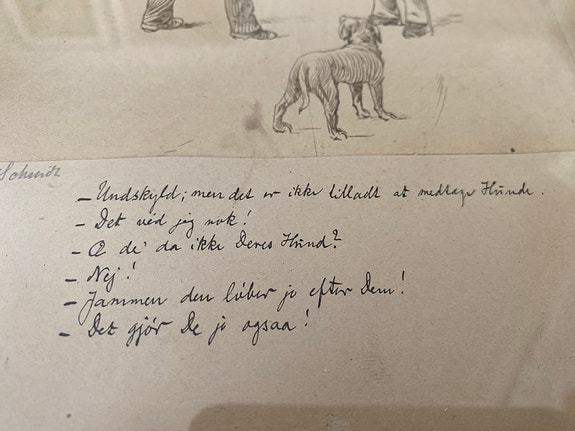 Schmitz
– Undskyld; men det er ikke tilladt at medtage Hunde.
– Det véd jeg nok!
– Æ de' da ikke Deres Hund?
– Nej!
– Jammen den löber jo efter Dem!
– Det gjör De jo ogsaa!